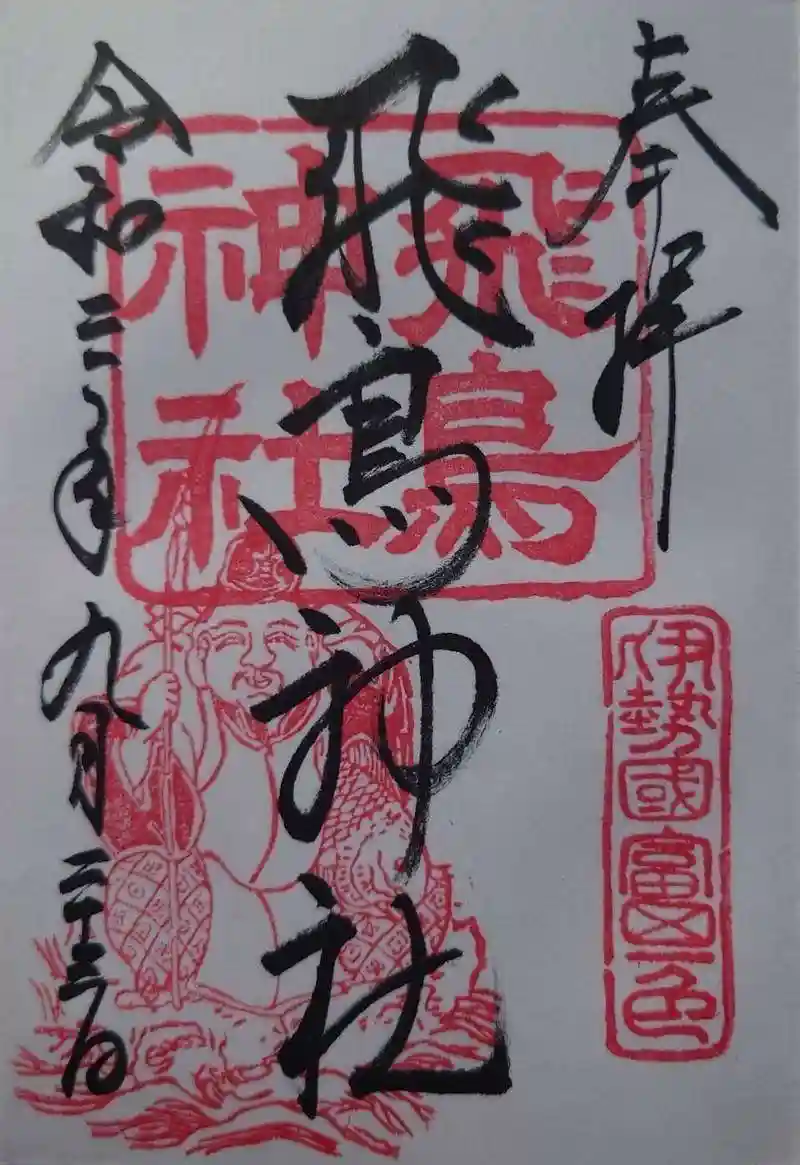 奉拝
伊勢國富一色
飛鳥神社
飛鳥
神社
令和三年九月二十三日